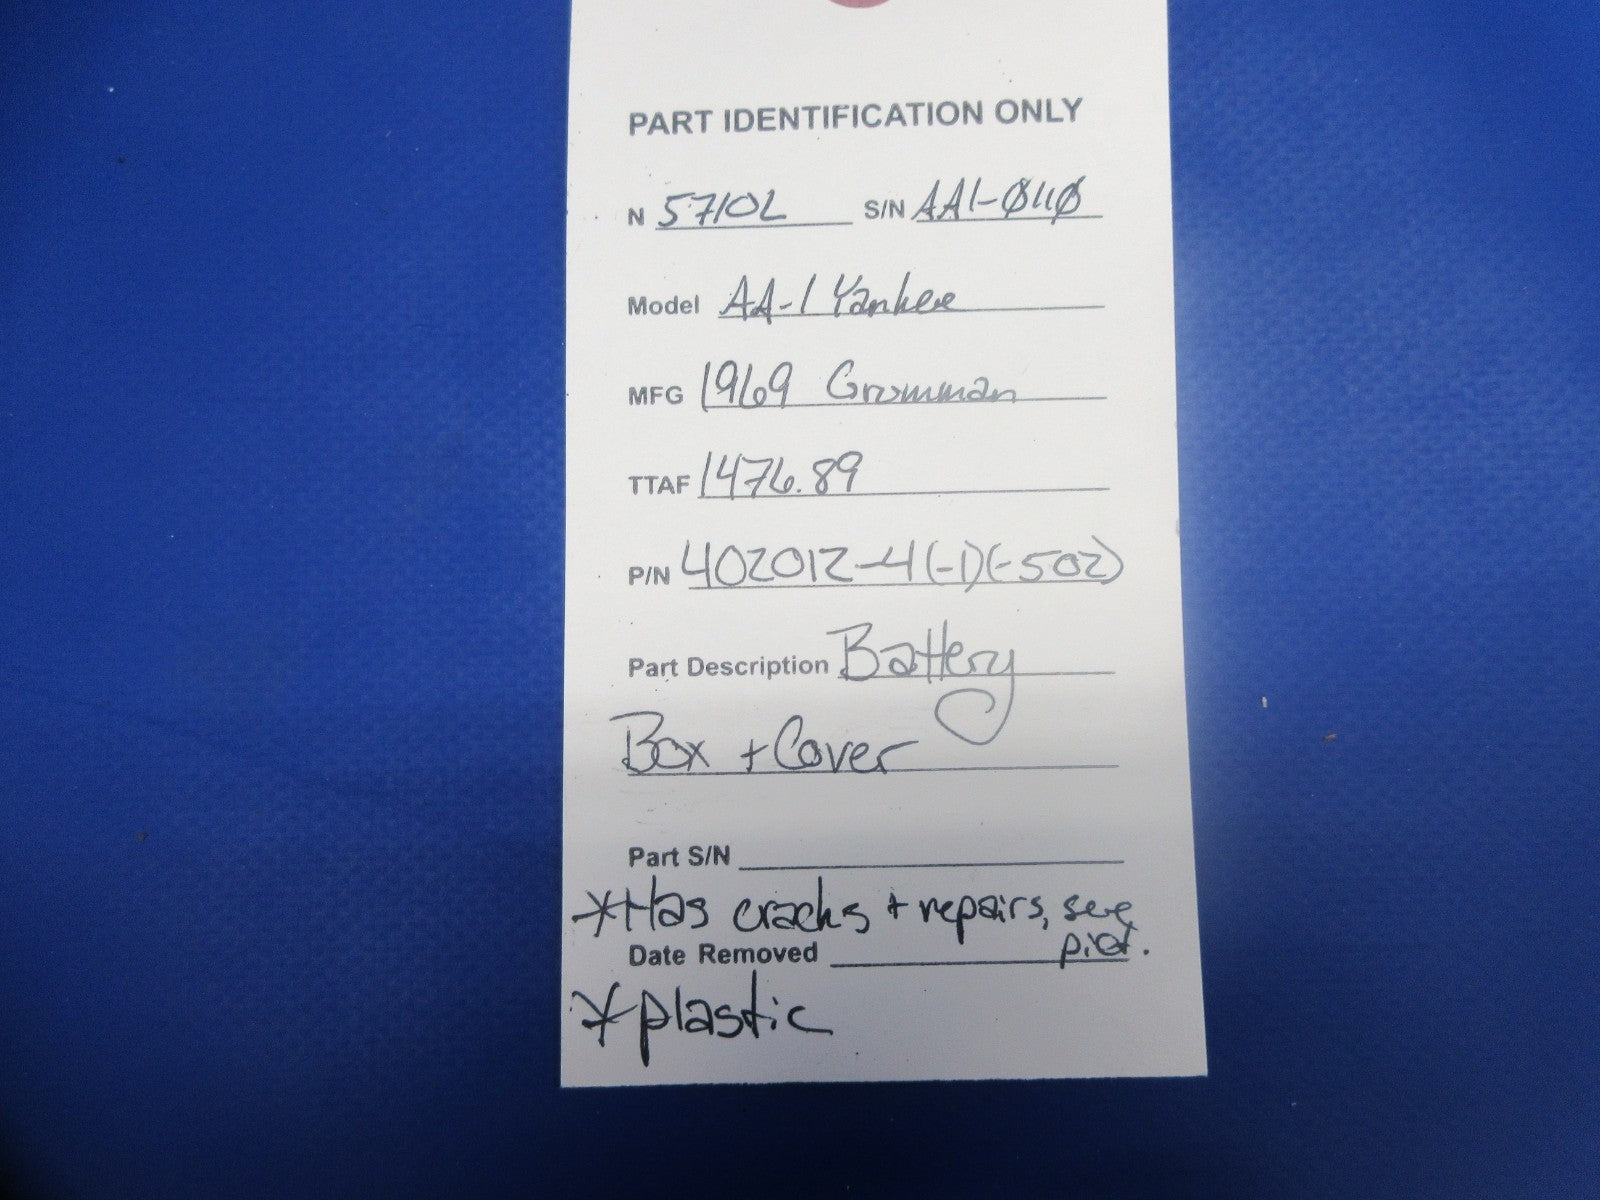 PART IDENTIFICATION ONLY
N 5710L S/N AA1-Ø11Ø
Model AA-1 Yankee
MFG 1969 Grumman
TTAF 1476.89
P/N 402012-4(-1)(-502)
Part Description Battery
Box + Cover
Part S/N
*Has cracks + repairs, see
pict.
Date Removed
*plastic